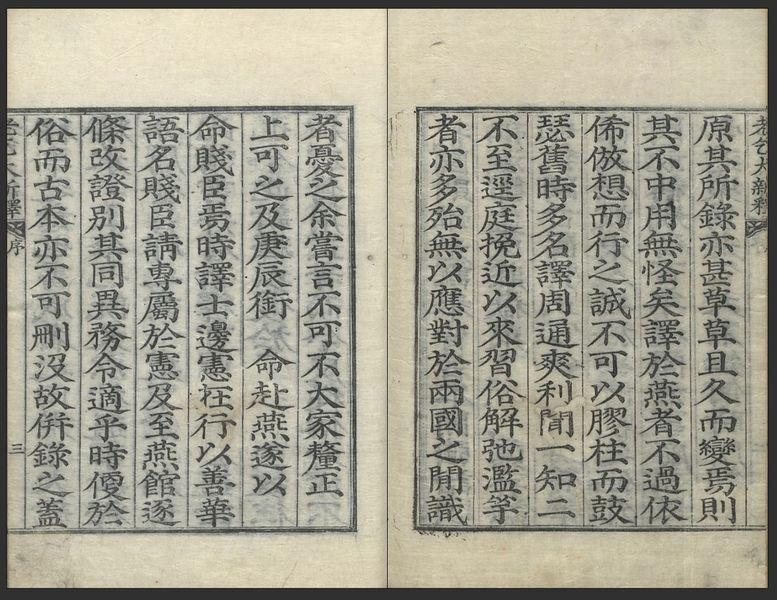 老乞大新釋
原其所錄亦甚草草且久而變焉則
其不中用無怪矣譯於燕者不過依
俙倣想而行之誠不可以膠柱而鼓
瑟舊時多名譯周通爽利聞一知二
不至逕庭挽近以來習俗解弛濫竽
者亦多殆無以應對於兩國之閒識
者憂之余嘗言不可不大家釐正
上可之及庚辰銜 命赴燕遂以
命賤臣焉時譯士邊憲在行以善華
語名賤臣請專屬於憲及至燕館遂
條改證別其同異務令適乎時便於
俗而古本亦不可刪沒故併錄之蓋
老乞大新釋 序 三